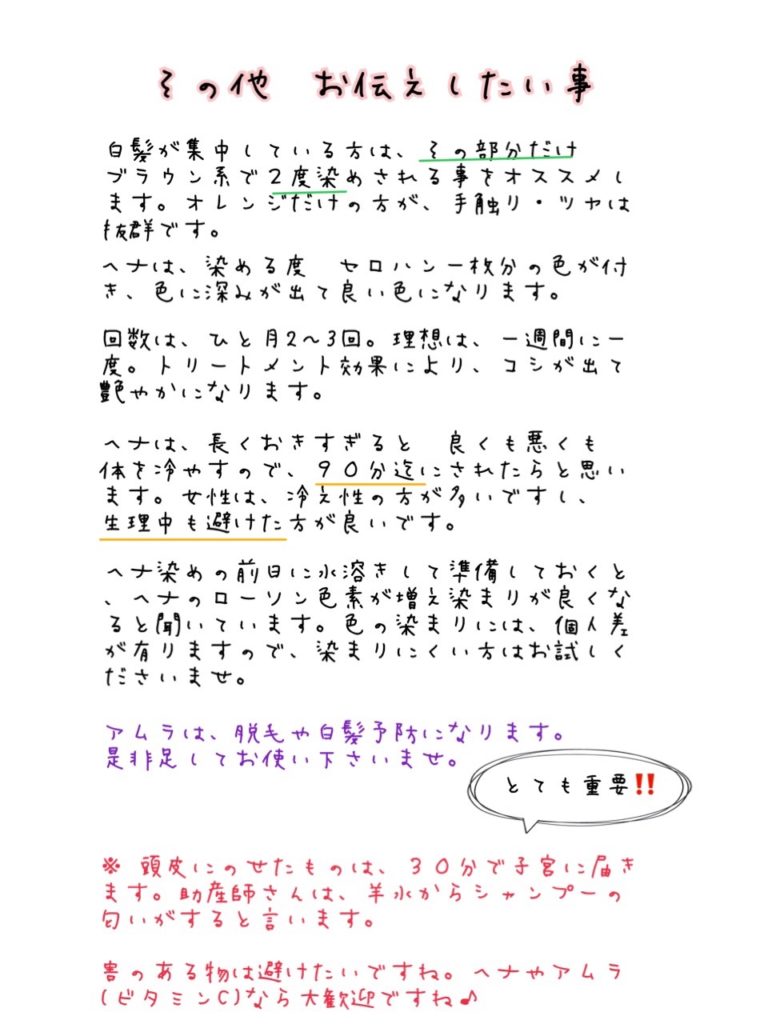 その他 お伝えしたい事
白髪が集中している方は、その部分だけ
ブラウン系で2度染めされる事をオススメし
ます。オレンジだけの方が、手触り・ツヤは
抜群です。
ヘナは、染める度 セロハン一枚分の色が付
き、色に深みが出て良い色になります。
回数は、ひと月2〜3回。理想は、一週間に一
度。トリートメント効果により、コシが出て
艶やかになります。
ヘナは、長くおきすぎると 良くも悪くも
体を冷やすので、90分迄にされたらと思い
ます。女性は、冷え性の方が多いですし、
生理中も避けた方が良いです。
ヘナ染めの前日に水溶きして準備しておくと
、ヘナのローソン色素が増え染まりが良くな
ると聞いています。色の染まりには、個人差
が有りますので、染まりにくい方はお試しく
ださいませ。
アムラは、脱毛や白髪予防になります。
是非足してお使い下さいませ。
とても重要‼️
※ 頭皮にのせたものは、30分で子宮に届き
ます。助産師さんは、羊水からシャンプーの
匂いがすると言います。
害のある物は避けたいですね。ヘナやアムラ
(ビタミンC)なら大歓迎ですね♪